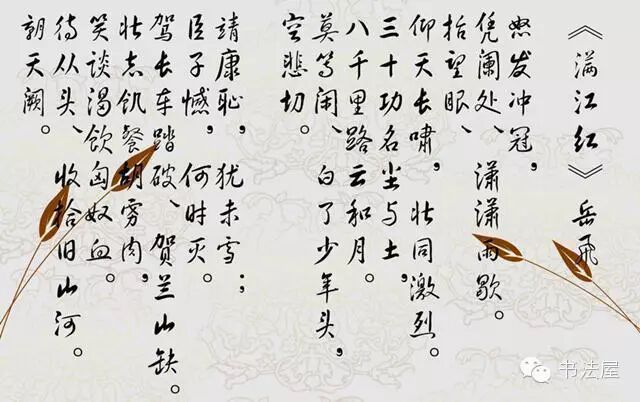 《满江红》岳飞
怒发冲冠,
凭阑处、潇潇雨歇。
抬望眼、
仰天长啸,壮同激烈。
三十功名尘与土,
八千里路云和月。
莫等闲、白了少年头,
空悲切。
靖康耻,犹未雪;
臣子憾,何时灭。
驾长车踏破、贺兰山缺。
壮志饥餐胡虏肉,
笑谈渴饮匈奴血。
待从头、收拾旧山河。
朝天阙。
书法屋